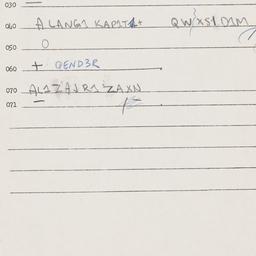 030
040 A LANG1 KAP1T1+ QW/XS1 D1M
050 O
060 + GEND3R
070 AL1ZAJR1 ZAXN
071